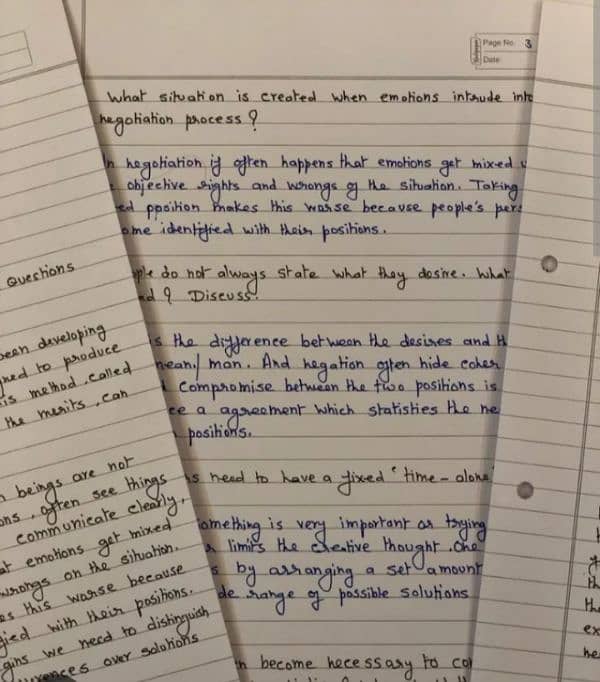 Page No. 3
Date
What situation is created when emotions intrude
negotiation process ?
negotiation if often happens that emotions get mixed
objective rights and wrongs of the situation. Taking
ppoition makes this worse because people's
identified with their positions.
do not always state what they desire. What
? Discuss.
the difference between the desires and
man. And negation often hide
Compromise between the two positions is
a agreement which statisties the
positions.
need to have a fixed "time - alone
something is very important as trying
limits the creative thought. One
by arranging a set amount
range of possible solutions
become necessary to
Questions
been developing
to produce
method, called
the merits, can
beings are not
often see things
communicate clearly,
emotions get mixed
wrongs on the situation.
this worse because
with their positions.
we need to distinguish
over solutions